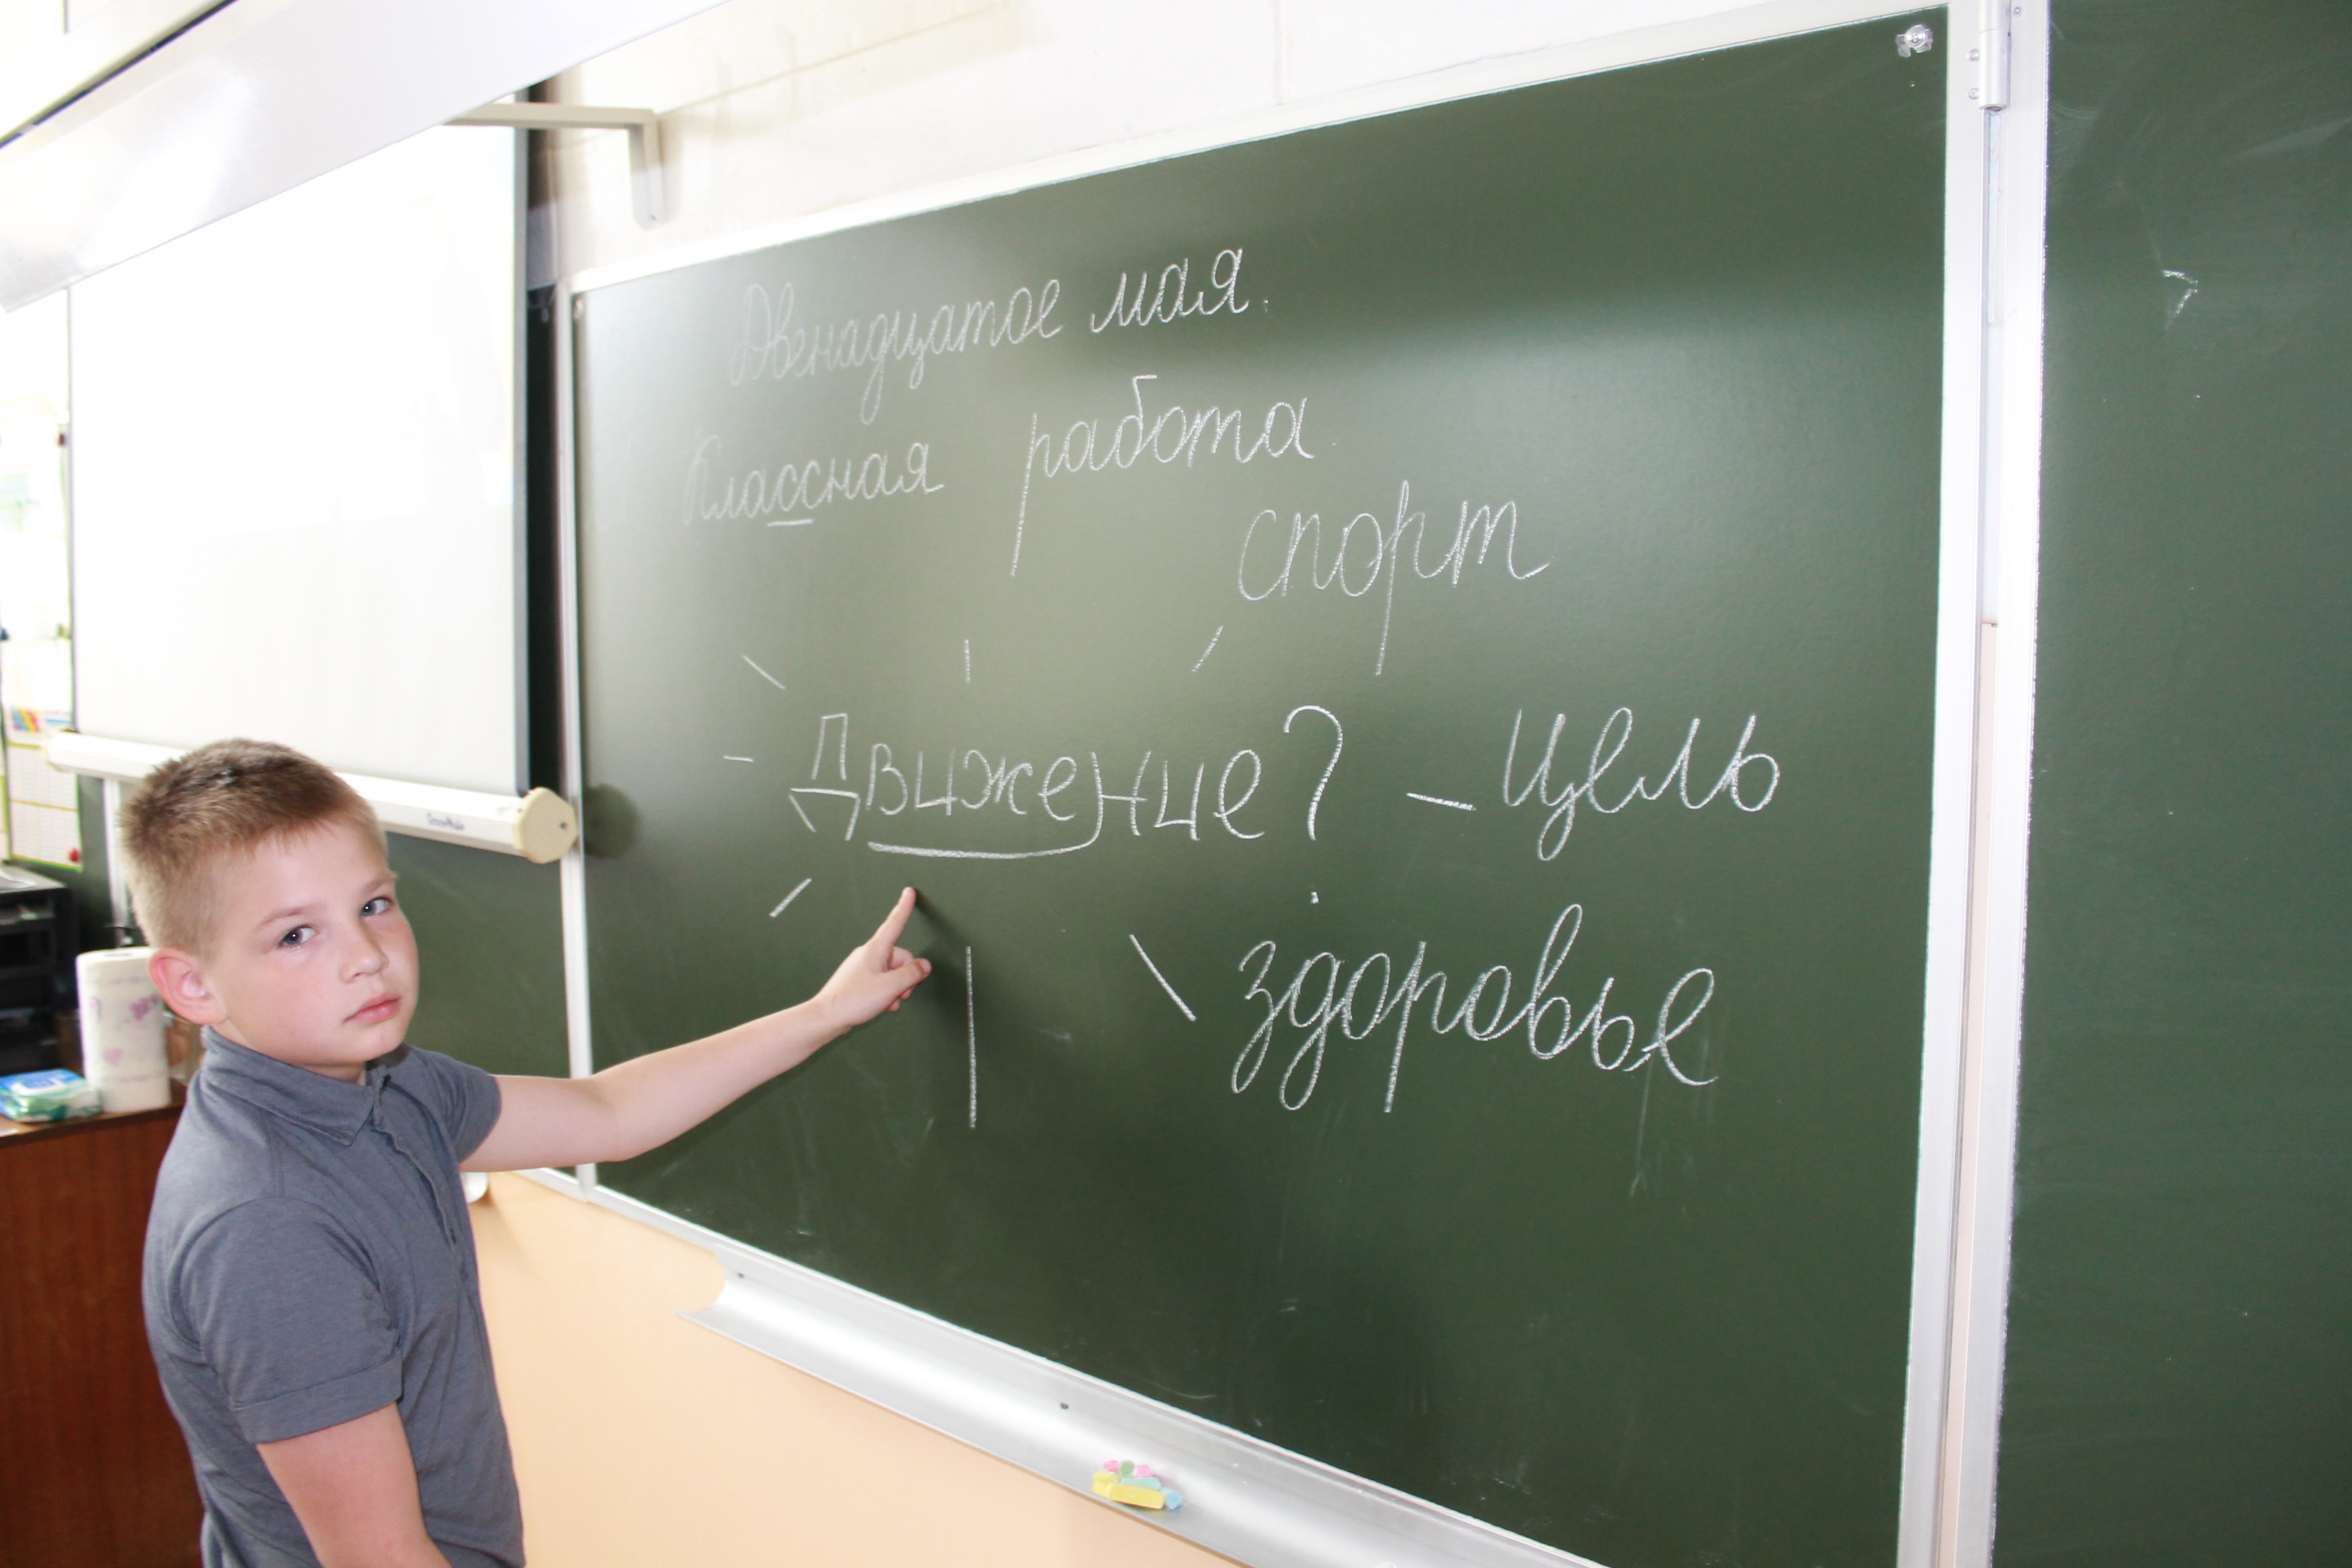 Двенадцатое мая.
Классная работа
спорт
Движение? – цель
здоровье